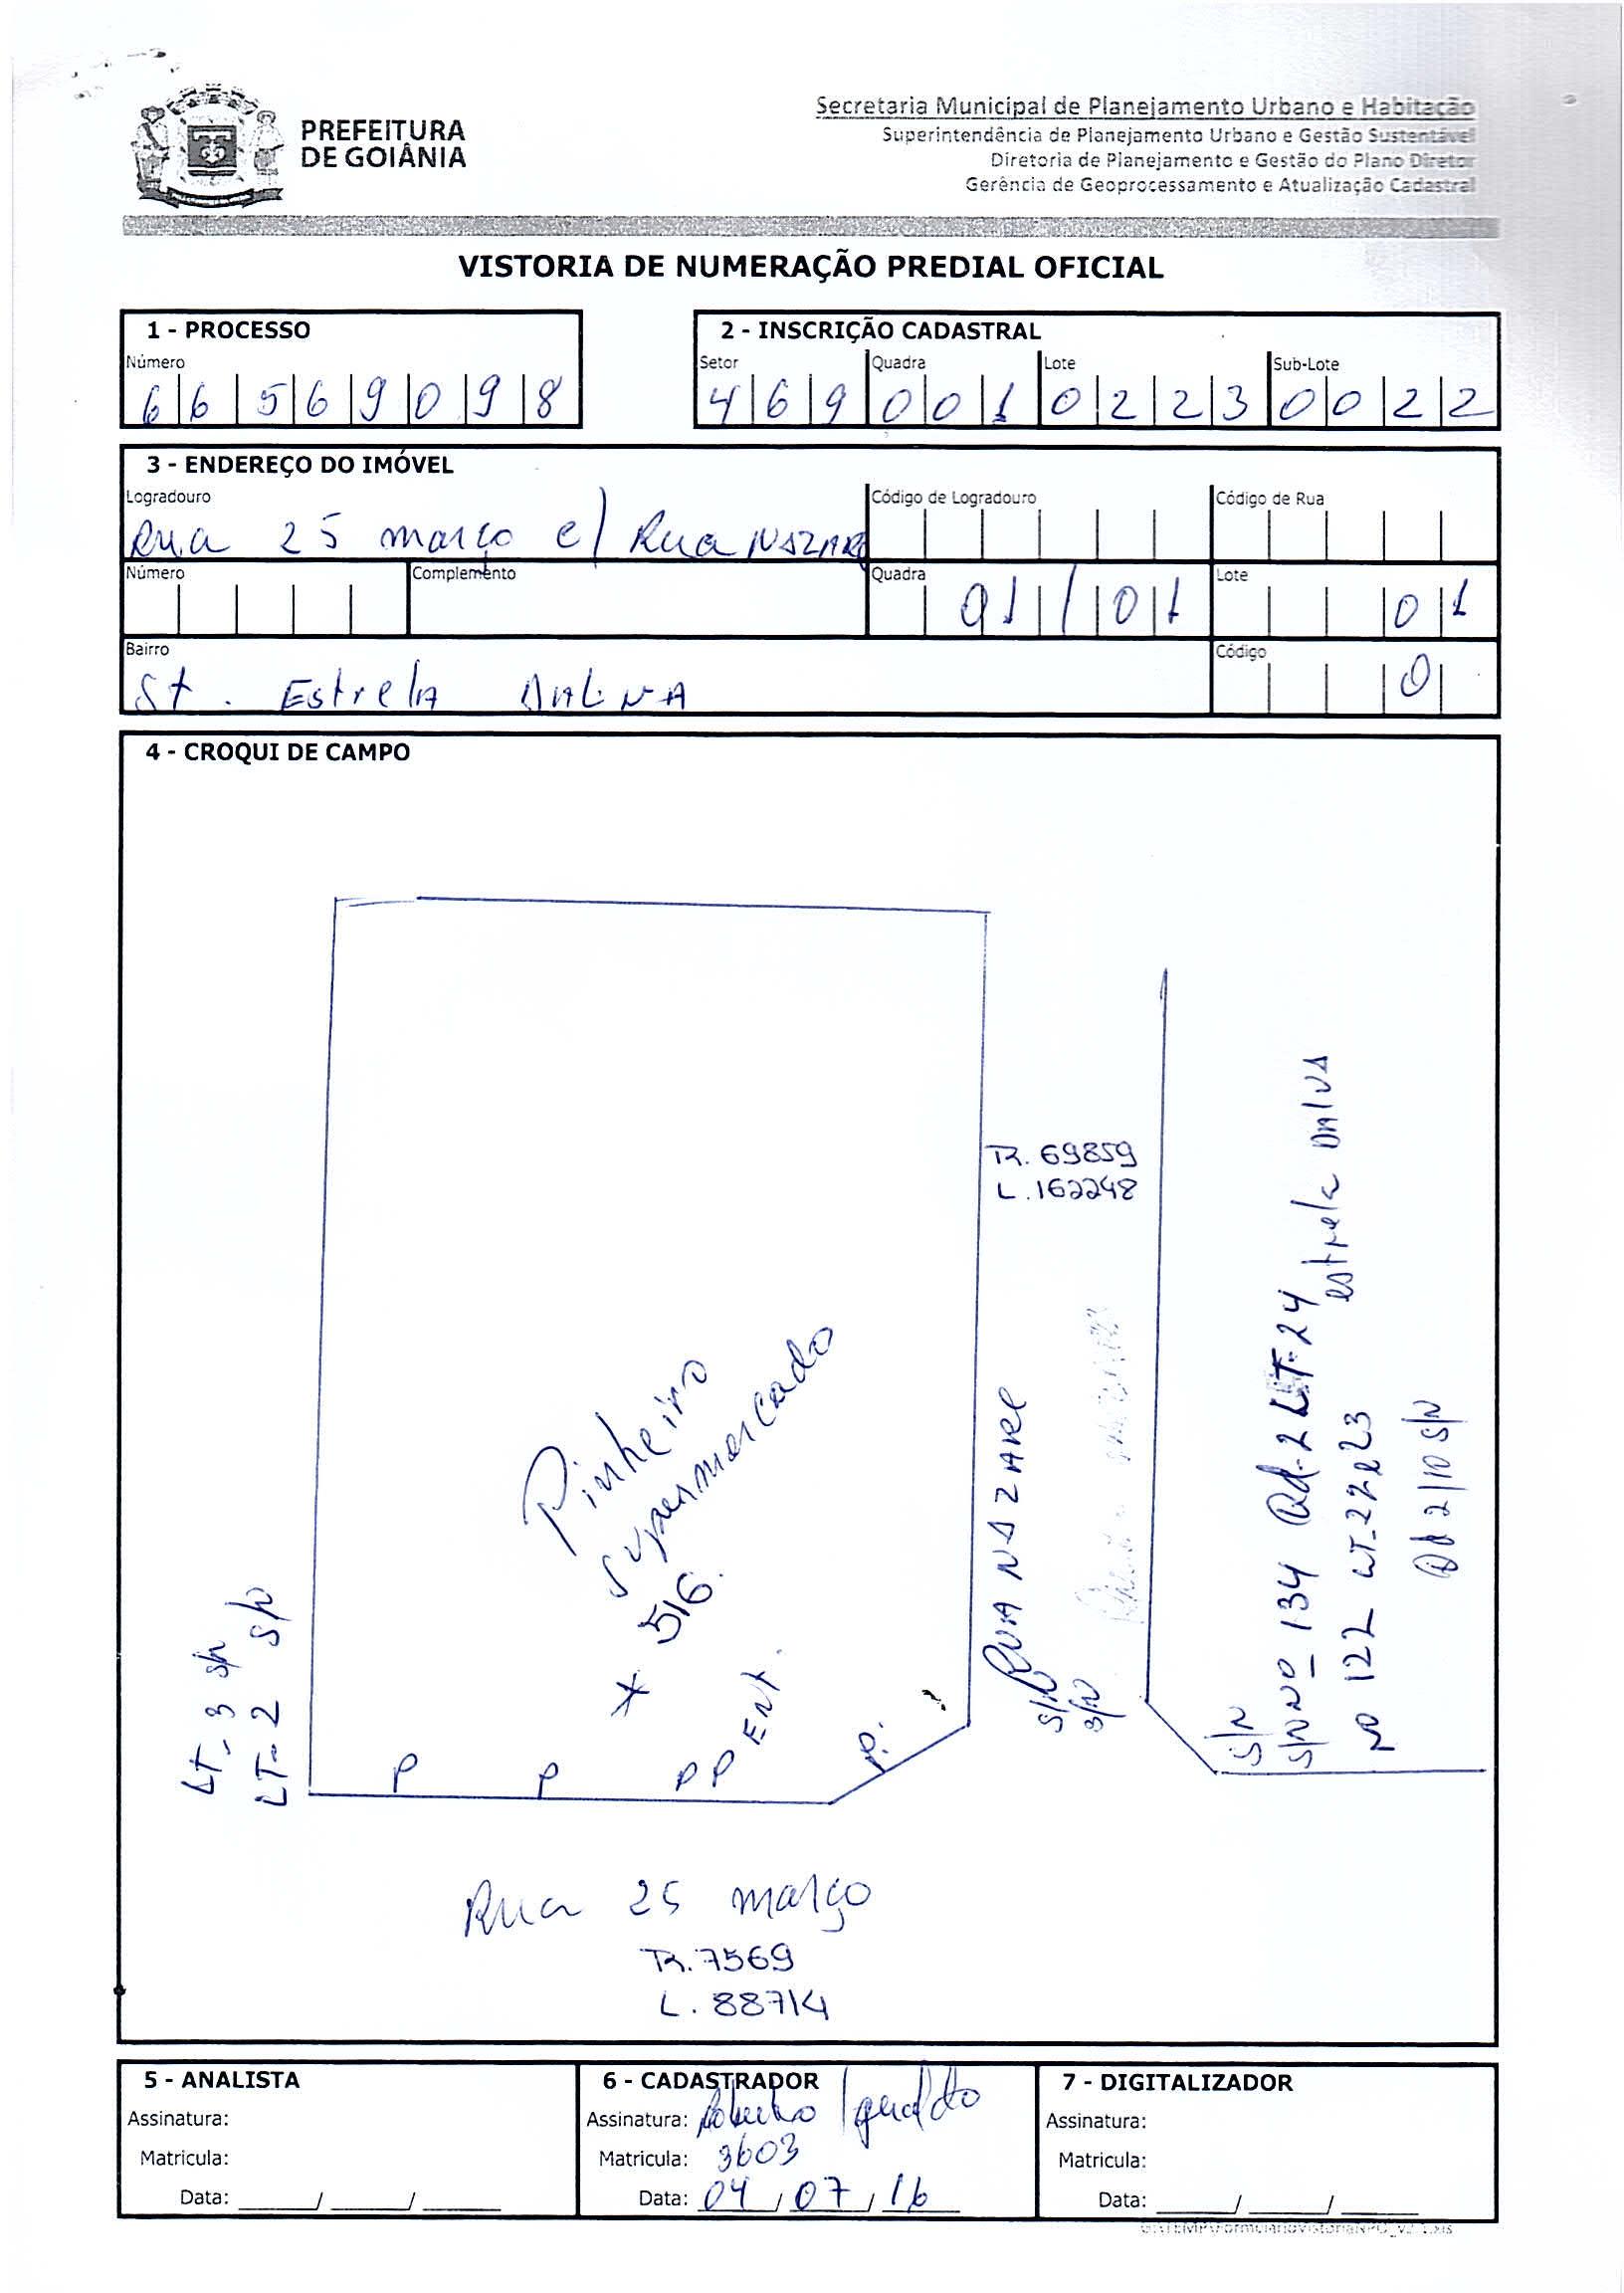 PREFEITURA
DE GOIÂNIA
Secretaria Municipal de Planejamento Urbano e Habitação
Superintendência de Planejamento Urbano e Gestão Sustentável
Diretoria de Planejamento e Gestão do Plano Diretor
Gerência de Geoprocessamento e Atualização Cadastral
VISTORIA DE NUMERAÇÃO PREDIAL OFICIAL
1 - PROCESSO
Número
6 6 5 6 9 0 9 8
2 - INSCRIÇÃO CADASTRAL
Setor Quadra Lote Sub-Lote
4 6 9 0 0 1 0 2 2 3 0 0 2 2
3 - ENDEREÇO DO IMÓVEL
Logradouro Código de Logradouro Código de Rua
Rua 25 março c/ Rua NAZARE
Número Complemento Quadra Lote
01 / 01 01
Bairro Código
St. Estrela DALVA 0
4 - CROQUI DE CAMPO
R. 69859
L. 162248
Pinheiro
supermercado
* 516.
ENT.
P P P P P.
LT-3 s/n
LT-2 s/N
RUA NAZARE
S/N
S/N
S/N
S/N Nº 134 Qd-2 LT-24
estrela DALVA
Nº 122 LT-22e23
Qd 2/10 S/N
Rua 25 março
R. 7569
L. 88714
5 - ANALISTA
Assinatura:
Matricula:
Data: ____/____/____
6 - CADASTRADOR
Assinatura: /Geraldo
Matricula: 3603
Data: 04/07/16
7 - DIGITALIZADOR
Assinatura:
Matricula:
Data: ____/____/____